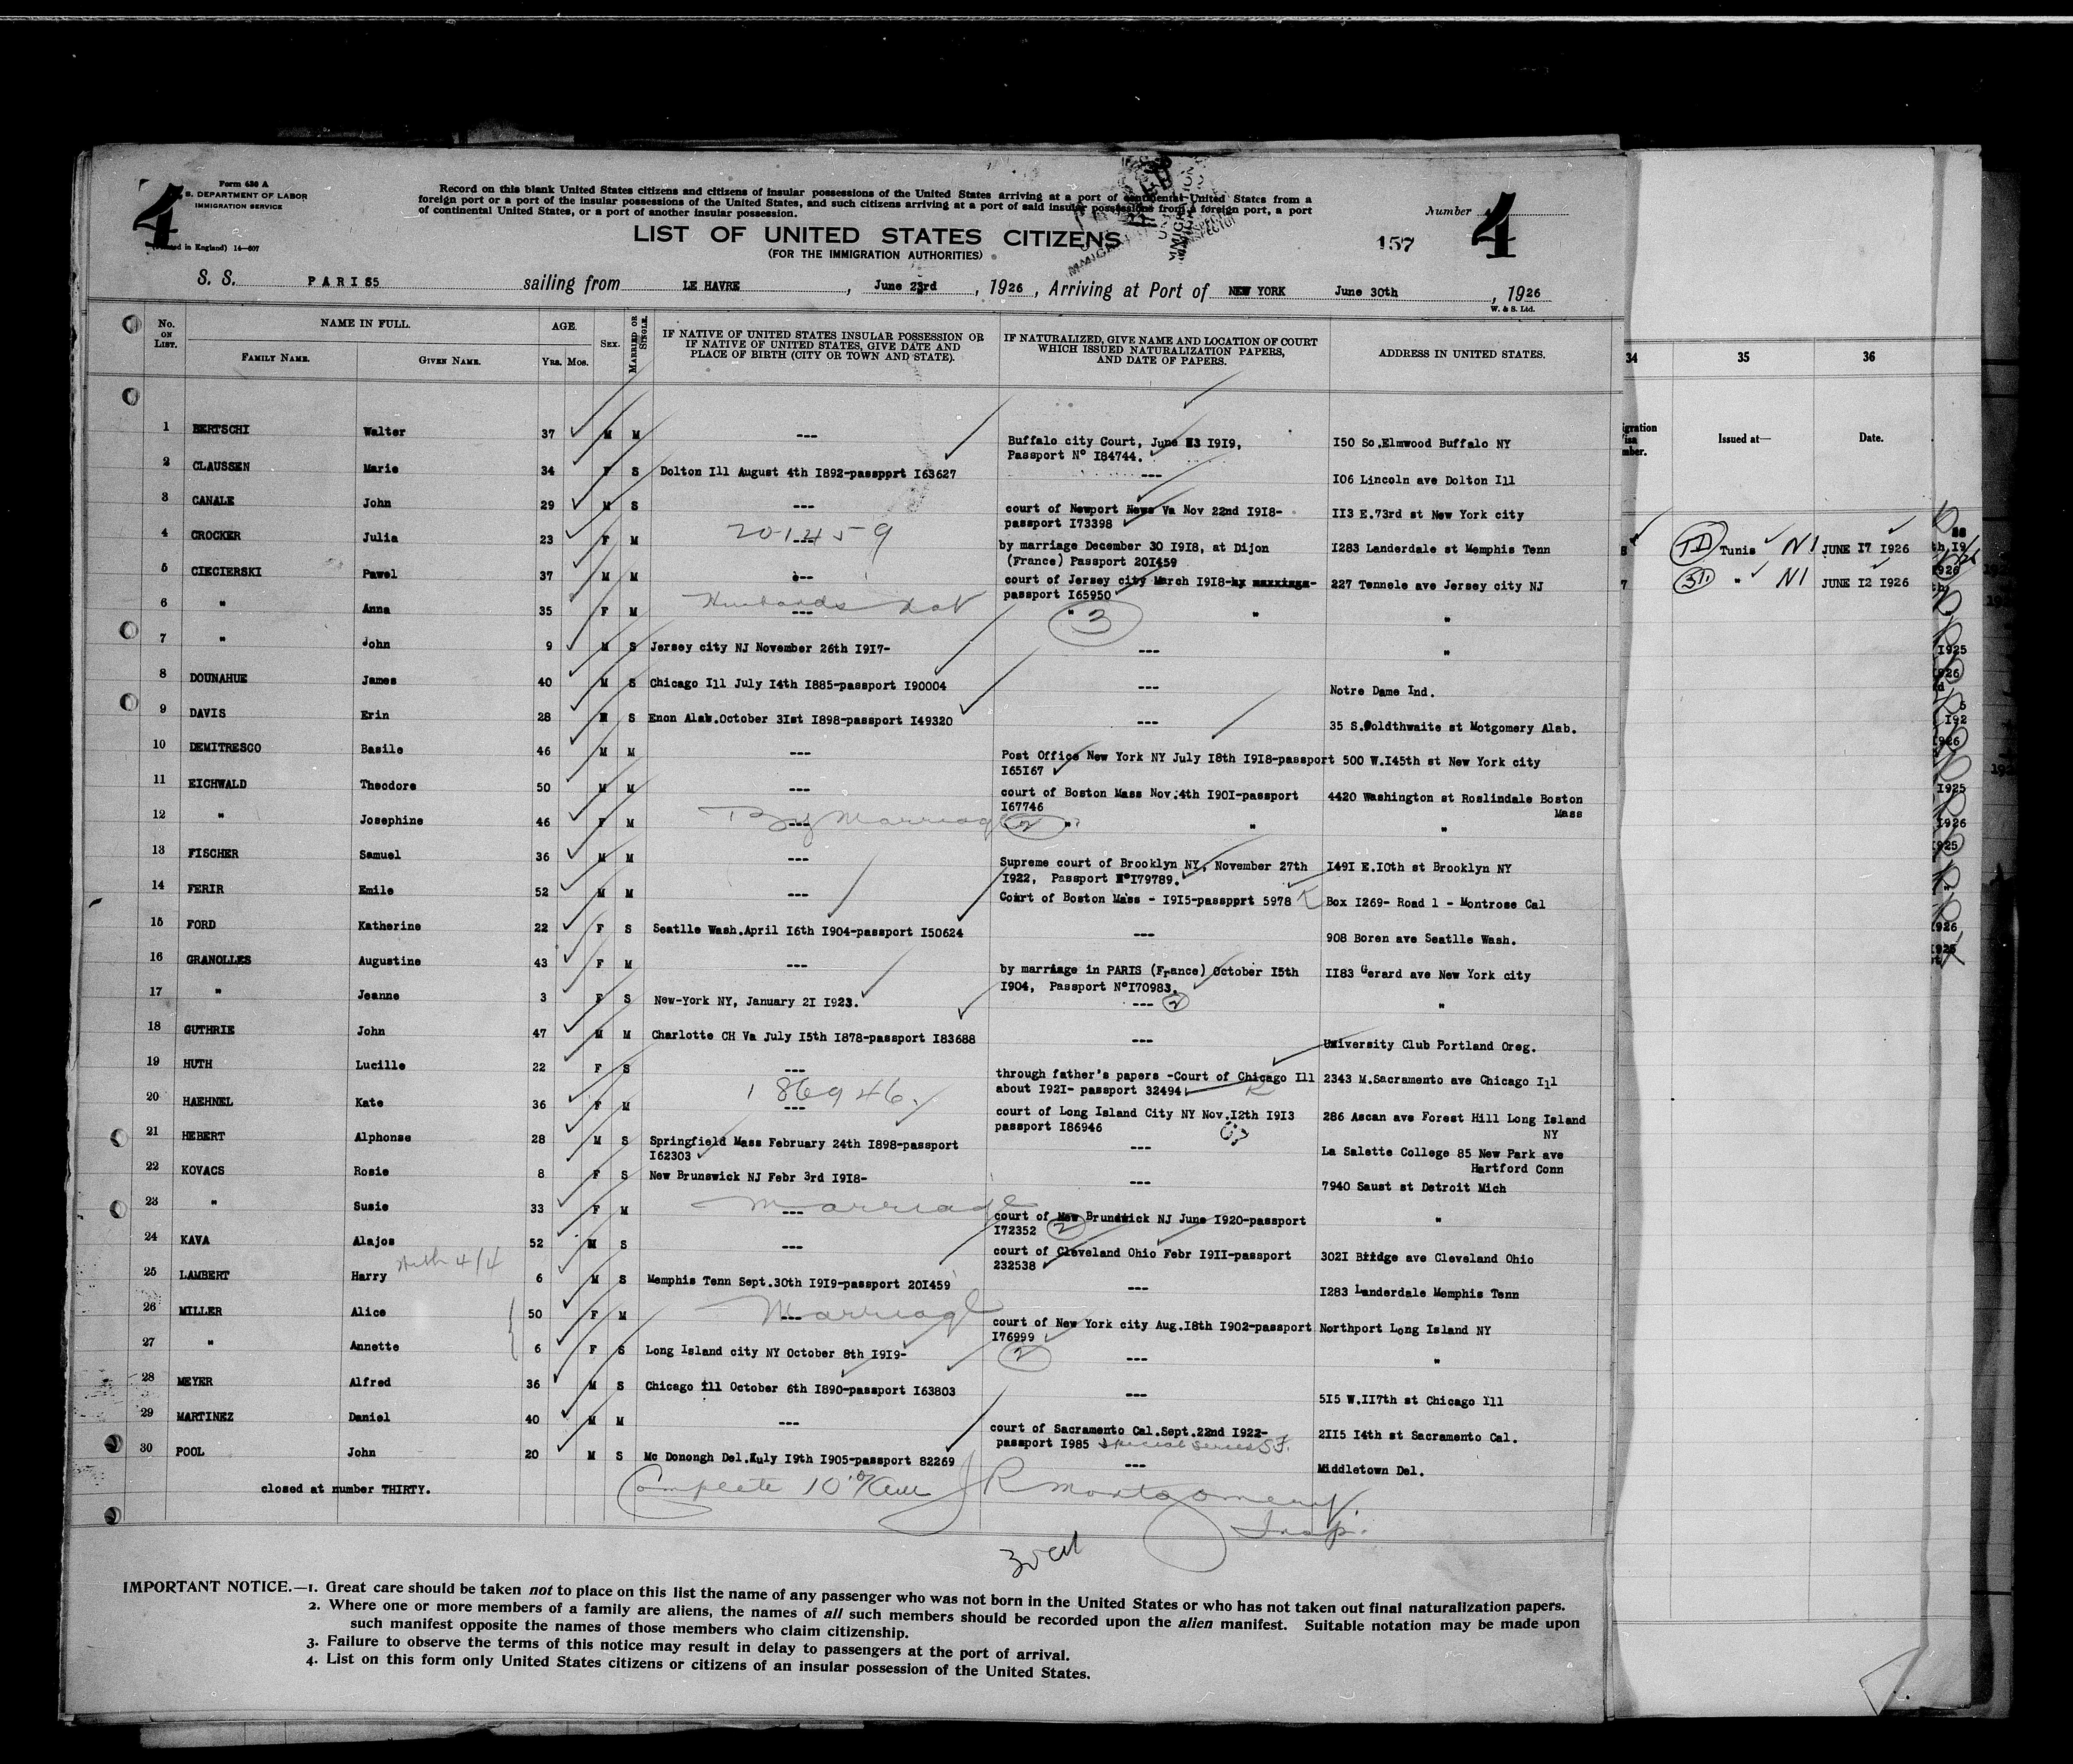 4
Form 630 A
S. DEPARTMENT OF LABOR
IMMIGRATION SERVICE
in England) 14—607
Record on this blank United States citizens and citizens of insular possessions of the United States arriving at a port of continental United States from a
foreign port or a port of the insular possessions of the United States, and such citizens arriving at a port of said insular possessions from a foreign port, a port
of continental United States, or a port of another insular possession.
Number 4
LIST OF UNITED STATES CITIZENS
157
(FOR THE IMMIGRATION AUTHORITIES)
S. S. PARIS sailing from LE HAVRE, June 23rd, 1926, Arriving at Port of NEW YORK June 30th, 1926
W. & S. Ltd.
No. ON LIST. NAME IN FULL. FAMILY NAME. GIVEN NAME. AGE. Yrs. Mos. SEX. MARRIED OR SINGLE. IF NATIVE OF UNITED STATES INSULAR POSSESSION OR IF NATIVE OF UNITED STATES, GIVE DATE AND PLACE OF BIRTH (CITY OR TOWN AND STATE). IF NATURALIZED, GIVE NAME AND LOCATION OF COURT WHICH ISSUED NATURALIZATION PAPERS, AND DATE OF PAPERS. ADDRESS IN UNITED STATES.
34 35 36
Issued at— Date.
1 BERTSCHI Walter 37 M M --- Buffalo city Court, June 3 I9I9, I50 So.Elmwood Buffalo NY
Passport N° I84744.
2 CLAUSSEN Marie 34 F S Dolton Ill August 4th I892-passpprt I63627 --- I06 Lincoln ave Dolton Ill
3 CANALE John 29 M S --- court of Newport News Va Nov 22nd I9I8- II3 E.73rd st New York city
passport I73398
4 CROCKER Julia 23 F M --- 201459 by marriage December 30 I9I8, at Dijon I283 Landerdale st Memphis Tenn
(France) Passport 20I459
5 CIECIERSKI Pawel 37 M M --- court of Jersey city March I9I8- 227 Tennele ave Jersey city NJ
passport I65950
6 " Anna 35 F M --- Husbands nat " 3 " "
7 " John 9 M S Jersey city NJ November 26th I9I7- --- "
8 DOUNAHUE James 40 M S Chicago Ill July I4th I885-passport I90004 --- Notre Dame Ind.
9 DAVIS Erin 28 M S Enon Alab.October 3Ist I898-passport I49320 --- 35 S.Goldthwaite st Motgomery Alab.
10 DEMITRESCO Basile 46 M M --- Post Office New York NY July I8th I9I8-passport 500 W.I45th st New York city
I65I67
11 EICHWALD Theodore 50 M M --- court of Boston Mass Nov.4th I90I-passport 4420 Washington st Roslindale Boston
I67746 Mass
12 " Josephine 46 F M --- By Marriage 2 " " "
13 FISCHER Samuel 36 M M --- Supreme court of Brooklyn NY, November 27th I49I E.I0th st Brooklyn NY
I922, Passport N°I79789.
14 FERIR Emile 52 M M --- Court of Boston Mass - I9I5-passpprt 5978 Box I269- Road l - Montrose Cal
15 FORD Katherine 22 F S Seatlle Wash.April I6th I904-passport I50624 --- 908 Boren ave Seatlle Wash.
16 GRANOLLES Augustine 43 F M --- by marriage in PARIS (France) October I5th II83 Gerard ave New York city
I904, Passport N°I70983.
17 " Jeanne 3 F S New-York NY, January 2I I923. --- 2 "
18 GUTHRIE John 47 M M Charlotte CH Va July I5th I878-passport I83688 --- University Club Portland Oreg.
19 HUTH Lucille 22 F S --- through father's papers -Court of Chicago Ill 2343 M.Sacramento ave Chicago Ill
about I92I- passport 32494
20 HAEHNEL Kate 36 F M --- 186946 court of Long Island City NY Nov.I2th I9I3 286 Ascan ave Forest Hill Long Island
passport I86946 NY
21 HEBERT Alphonse 28 M S Springfield Mass February 24th I898-passport --- La Salette College 85 New Park ave
I62303 Hartford Conn
22 KOVACS Rosie 8 F S New Brunswick NJ Febr 3rd I9I8- --- 7940 Saust st Detroit Mich
23 " Susie 33 F M --- Marriage court of New Brundwick NJ June I920-passport "
I72352 2
24 KAVA Alajos 52 M S --- court of Cleveland Ohio Febr I9II-passport 302I Bridge ave Cleveland Ohio
232538
25 LAMBERT Harry with 4/4 6 M S Memphis Tenn Sept.30th I9I9-passport 20I459 --- I283 Landerdale Memphis Tenn
26 MILLER Alice 50 F M --- Marriage court of New York city Aug.I8th I902-passport Northport Long Island NY
I76999
27 " Annette 6 F S Long Island city NY October 8th I9I9- 2 --- "
28 MEYER Alfred 36 M S Chicago ill October 6th I890-passport I63803 --- 5I5 W.II7th st Chicago Ill
29 MARTINEZ Daniel 40 M M --- court of Sacramento Cal.Sept.22nd I922- 2II5 I4th st Sacramento Cal.
passport I985 Special Series SF.
30 POOL John 20 M S Mc Donongh Del.July I9th I905-passport 82269 --- Middletown Del.
closed at number THIRTY.
Complete 10 am J R Montgomery
Insp.
Tunis N1 JUNE I7 I926
" N1 JUNE I2 I926
IMPORTANT NOTICE.—1. Great care should be taken not to place on this list the name of any passenger who was not born in the United States or who has not taken out final naturalization papers.
2. Where one or more members of a family are aliens, the names of all such members should be recorded upon the alien manifest. Suitable notation may be made upon
such manifest opposite the names of those members who claim citizenship.
3. Failure to observe the terms of this notice may result in delay to passengers at the port of arrival.
4. List on this form only United States citizens or citizens of an insular possession of the United States.